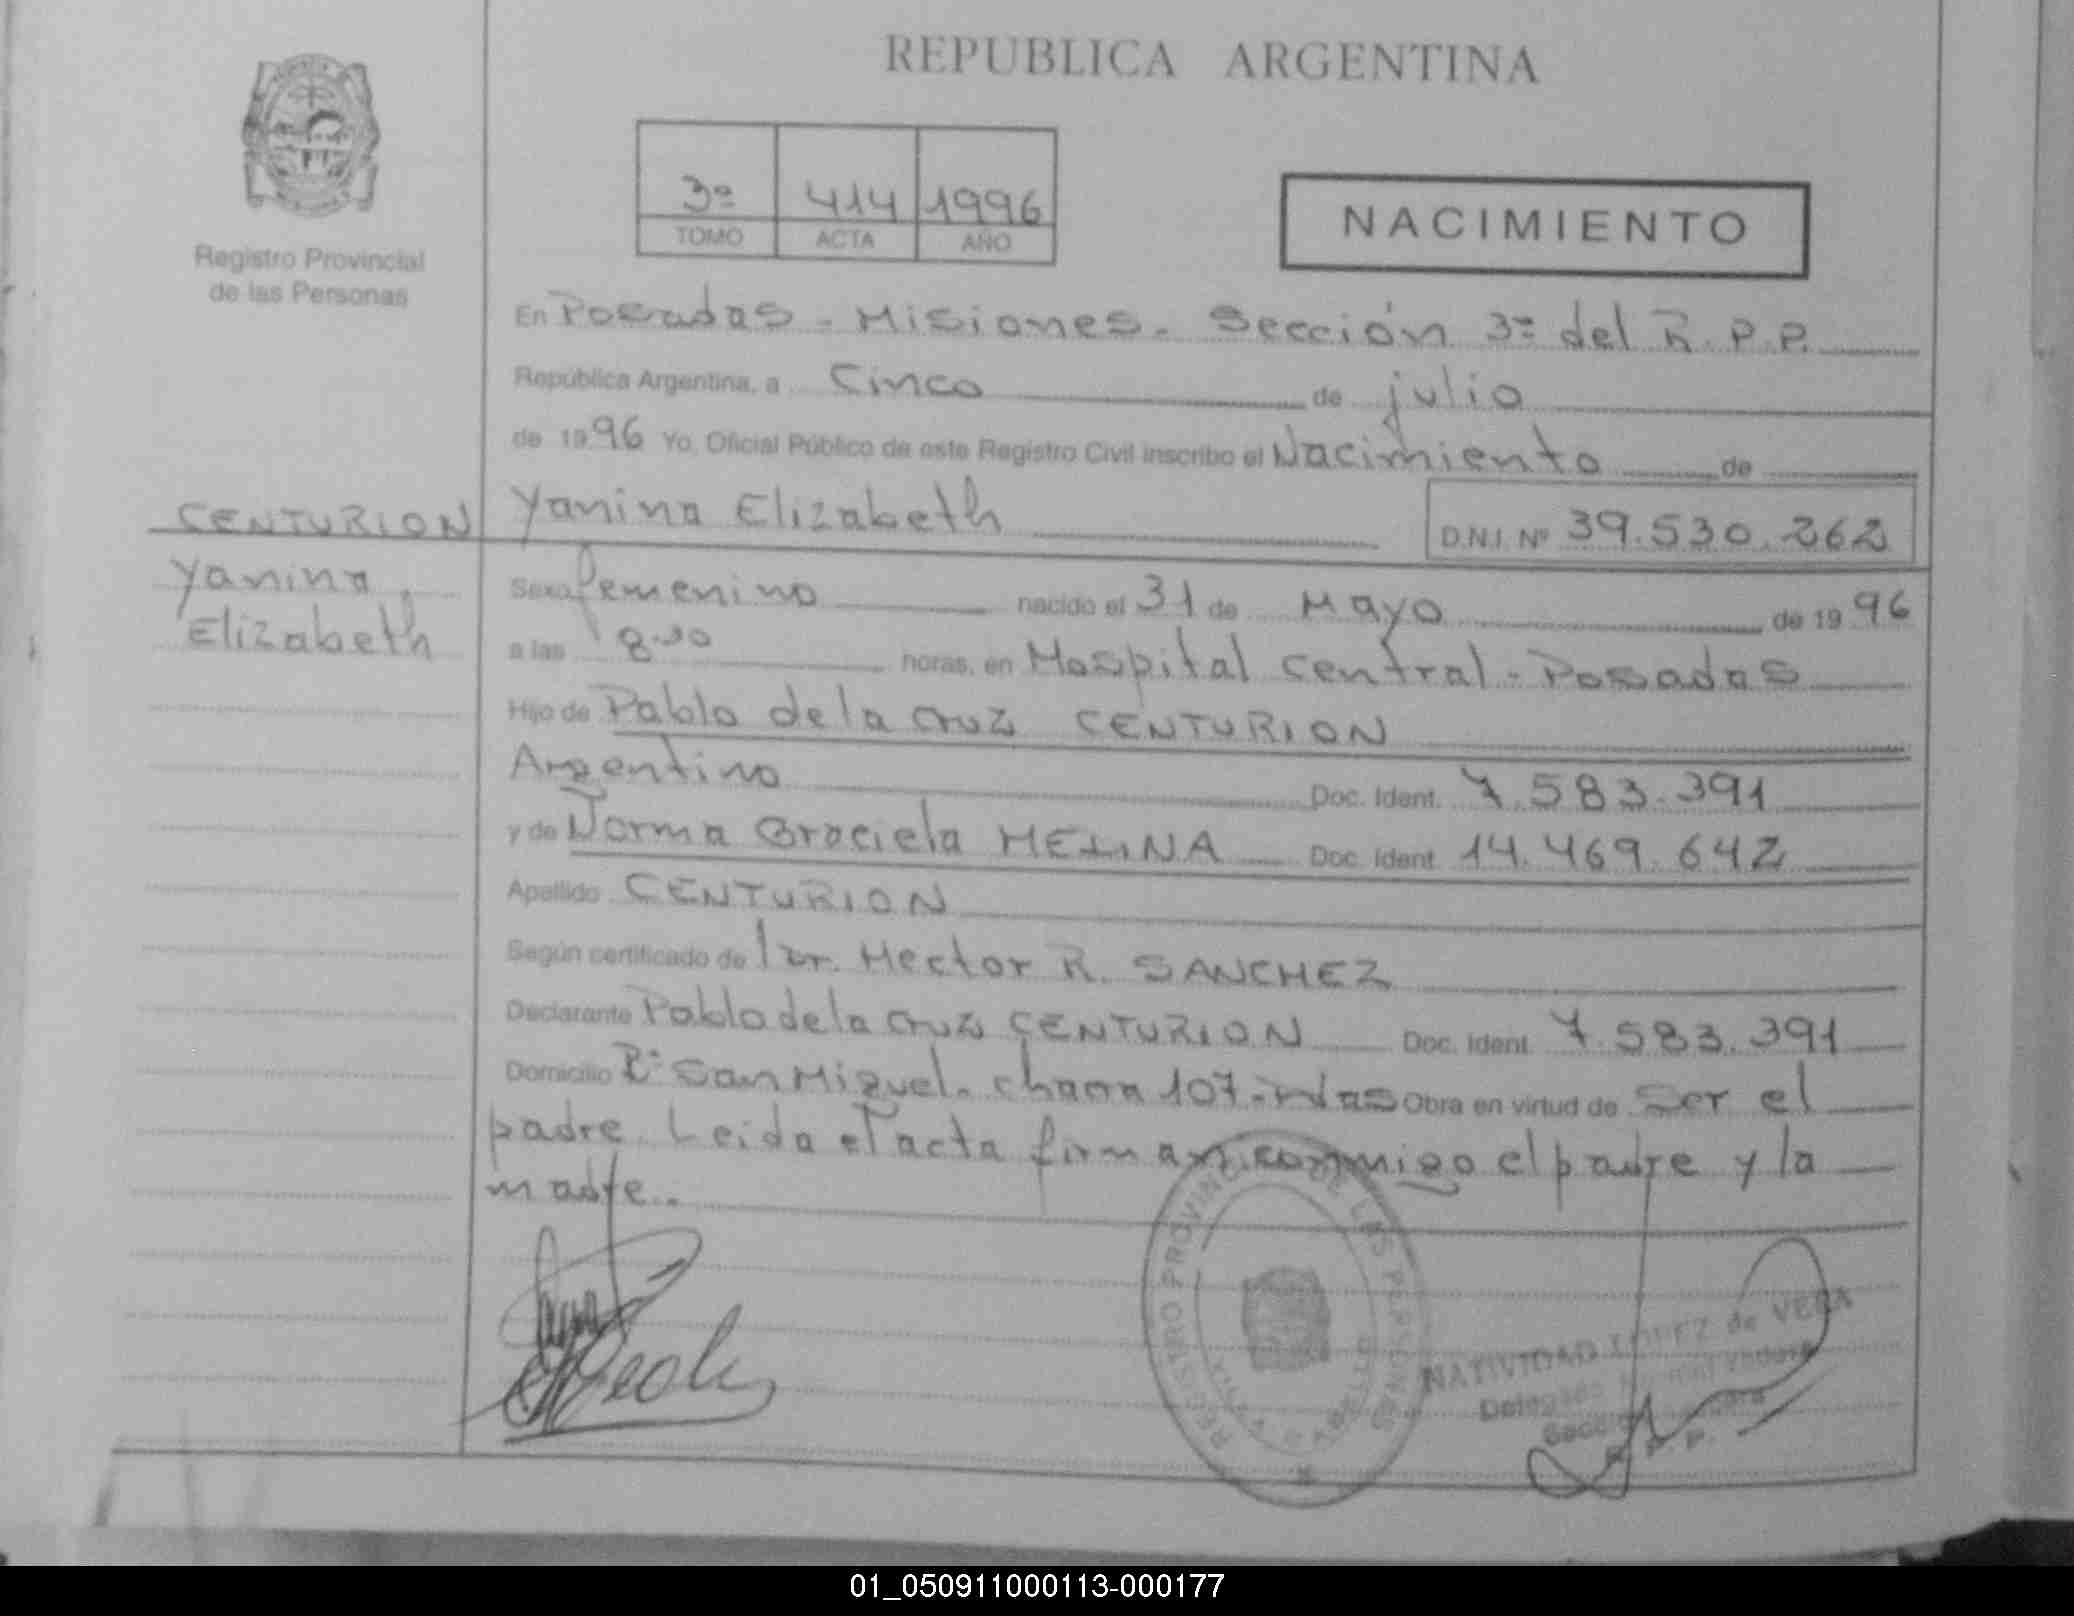 REPUBLICA ARGENTINA
Registro Provincial
de las Personas
3º 414 1996
TOMO ACTA AÑO
NACIMIENTO
En Posadas - Misiones - Sección 3ª del R. P. P.
República Argentina, a Cinco de julio
de 1996 Yo, Oficial Público de este Registro Civil inscribo el Nacimiento de
CENTURION Yanina Elizabeth D.N.I. Nº 39.530.262
Yanina
Elizabeth
Sexo femenino nacido el 31 de Mayo de 1996
a las 8.30 horas, en Hospital Central - Posadas
Hijo de Pablo de la Cruz CENTURION
Argentino Doc. Ident. 7.583.391
y de Norma Graciela Doc. Ident. 14.469.642
Apellido CENTURION
Según certificado de Dr. Hector R. SANCHEZ
Declarante Pablo de la Cruz CENTURION Doc. Ident. 7.583.391
Domicilio Bº San Miguel - chacra 107 - Obra en virtud de Ser el
padre. Leida el acta firman conmigo el padre y la
madre.
REGISTRO PROVINCIAL DE LAS PERSONAS
NATIVIDAD LOPEZ de VERA
01_050911000113-000177